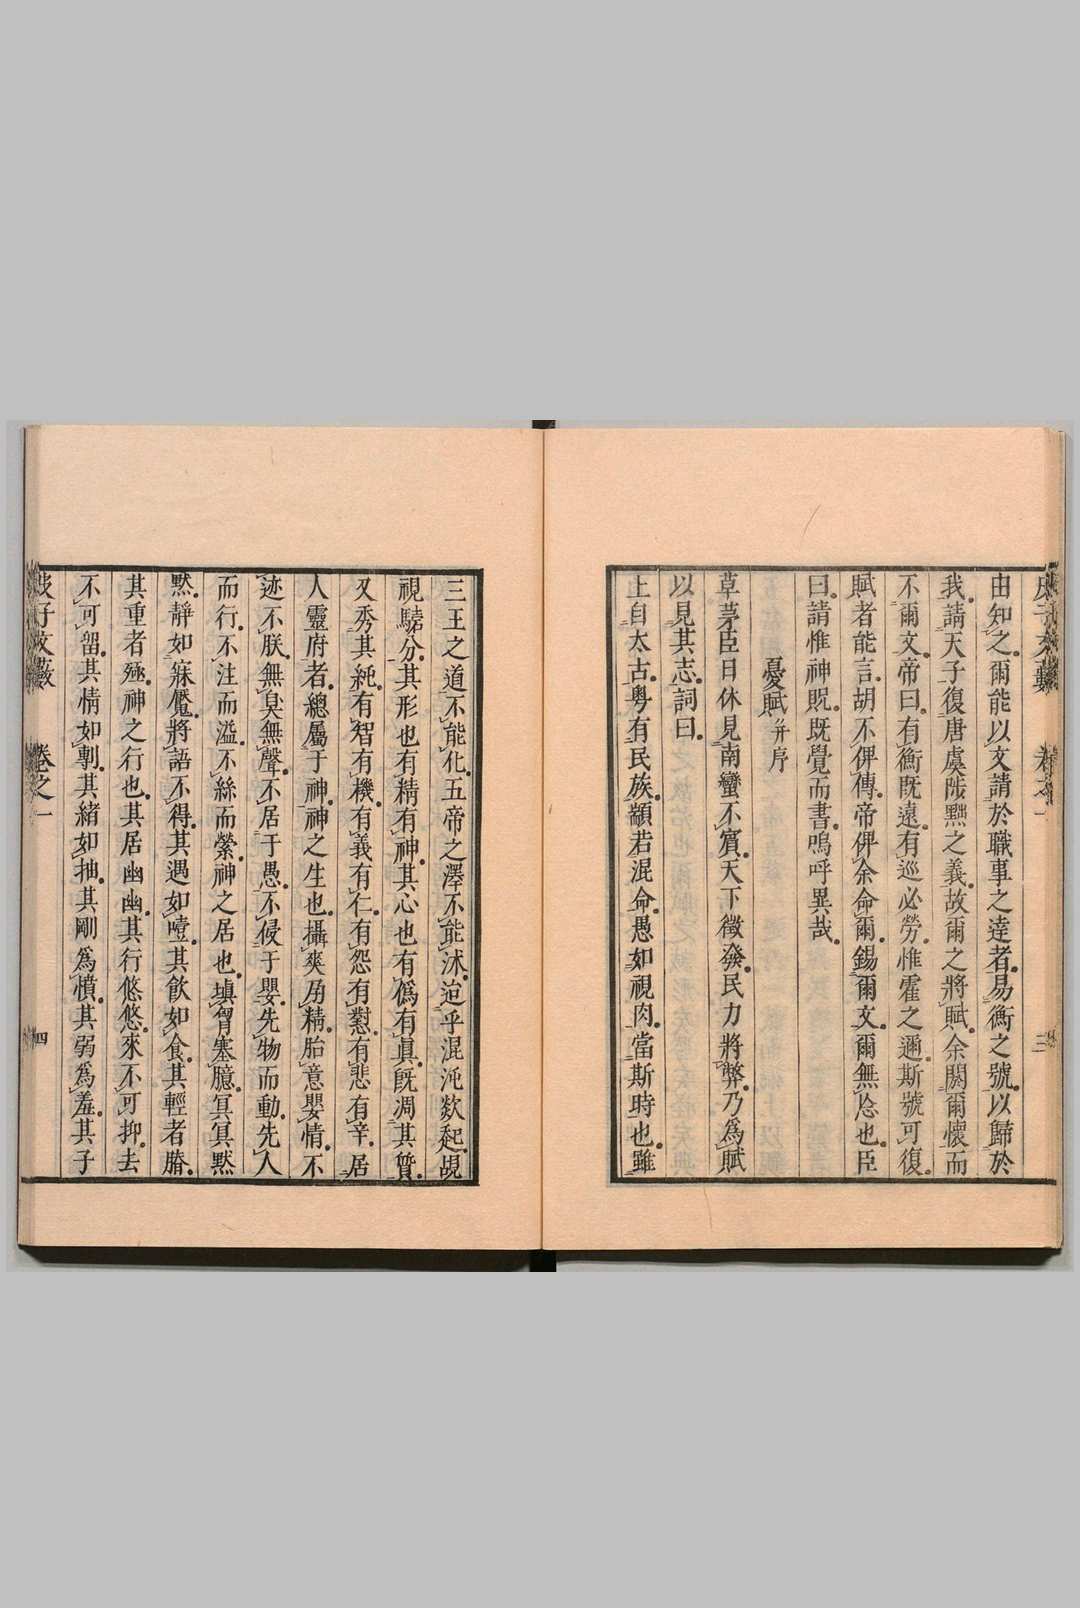 由知之爾能以文請於職事之達者易衡之號以歸於
我請天子復唐虞陟黜之義故爾之將賦余閼爾懷而
不爾文帝曰有衡既遠有巡必勞惟霍之邇斯號可復
賦者能言胡不俾傳帝俾余命爾錫爾文爾無忩也臣
曰請惟神貺既覺而書嗚呼異哉
憂賦并序
草茅臣日休見南蠻不賓天下徵發民力將弊乃為賦
以見其志詞曰
上自太古粵有民族顓若混命愚如視肉當斯時也雖
三王之道不能化五帝之澤不能沭迨乎混沌欻起覘
視驍分其形也有精有神其心也有偽有真既凋其質
又秀其純有智有機有義有仁有怨有懟有悲有辛居
人靈府者總屬于神神之生也攝爽孕精胎意嬰情不
迹不朕無臭無聲不居于愚不侵于嬰先物而動先人
而行不注而溢不絲而縈神之居也塡胷塞臆冥冥默
默靜如寐魘將語不得其遇如噎其飲如食其輕者腯
其重者殛神之行也其居幽幽其行悠悠來不可抑去
不可留其情如剸其緒如抽其剛為憤其弱為羞其子
皮子文藪 卷之一 四